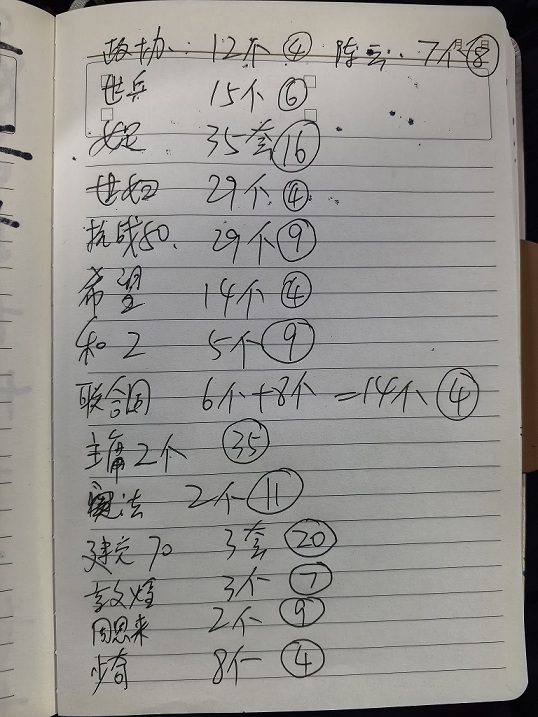 政协： 12个 ④ 陈云： 7个 ⑧
世乒 15个 ⑥
女足 35套 ⑯
世妇 29个 ④
抗战50. 29个 ⑨
希望 14个 ④
和2 5个 ⑨
联合国 6个+8个 =14个 ④
主席2个 ㉟
宪法 2个 ⑪
建党70 3套 ⑳
敦煌 3个 ⑦
周恩来 2个 ⑨
少奇 8个 ④